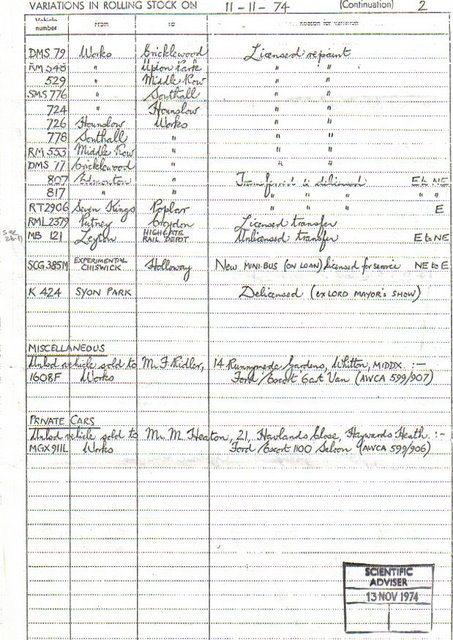 VARIATIONS IN ROLLING STOCK ON 11-11-74 (Continuation) 2
Vehicle number From To Reason for variation
DMS 79 Works Cricklewood Licensed repaint
RM 548 " Upton Park " "
529 " Middle Row " "
SMS 776 " Southall " "
724 " Hounslow " "
726 Hounslow Works " "
778 Southall " " "
RM 553 Middle Row " " "
DMS 77 Cricklewood " " "
807 Edmonton " Transferred & delicensed E to NE
817 " " " " " "
RT2906 Seven Kings Poplar " " " E
RML2379 Putney Croydon Licensed transfer
MB 121 Leyton HIGHGATE RAIL DEPOT Unlicensed transfer E to NE
SCG 385M EXPERIMENTAL CHISWICK Holloway New MINI-BUS (ON LOAN) licensed for service NE to E
K 424 SYON PARK Delicensed (ex LORD MAYOR'S SHOW)
MISCELLANEOUS
Unlcd vehicle sold to Mr. F. Ridler, 14 Runnymede Gardens, Whitton, MIDDX :—
1608F Works Ford Escort 6cwt Van (AWCA 599/907)
PRIVATE CARS
Unlcd vehicle sold to Mr. M. Heaton, 21, Haylands Close, Haywards Heath :-
MGX 911L Works Ford Escort 1100 Saloon (AWCA 599/906)
SCIENTIFIC
ADVISER
13 NOV 1974